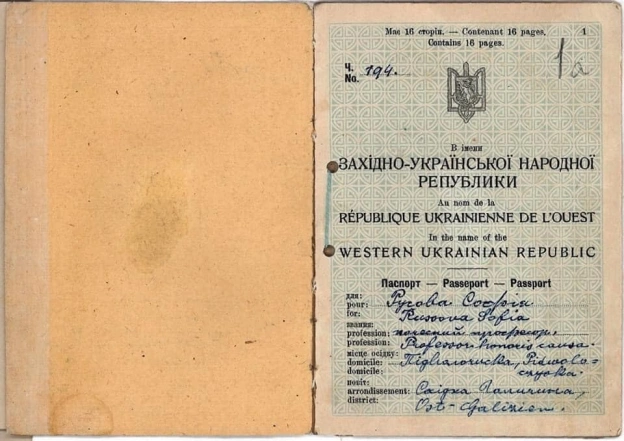 Має 16 сторін. — Contenant 16 pages. 1
Contains 16 pages.
1a
Ч.
No. 194.
В імени
ЗАХІДНО-УКРАЇНСЬКОЇ НАРОДНОЇ
РЕПУБЛИКИ
Au nom de la
RÉPUBLIQUE UKRAINIENNE DE L'OUEST
In the name of the
WESTERN UKRAINIAN REPUBLIC
Паспорт — Passeport — Passport
для:
pour: Русова Софія
for: Russova Sofia
звання:
profession: почесний професор.
profession: Professor honoris causa.
місце осідку:
domicile:
domicile:
повіт:
arrondissement: Східна Галичина,
district: Ost-Galizien.